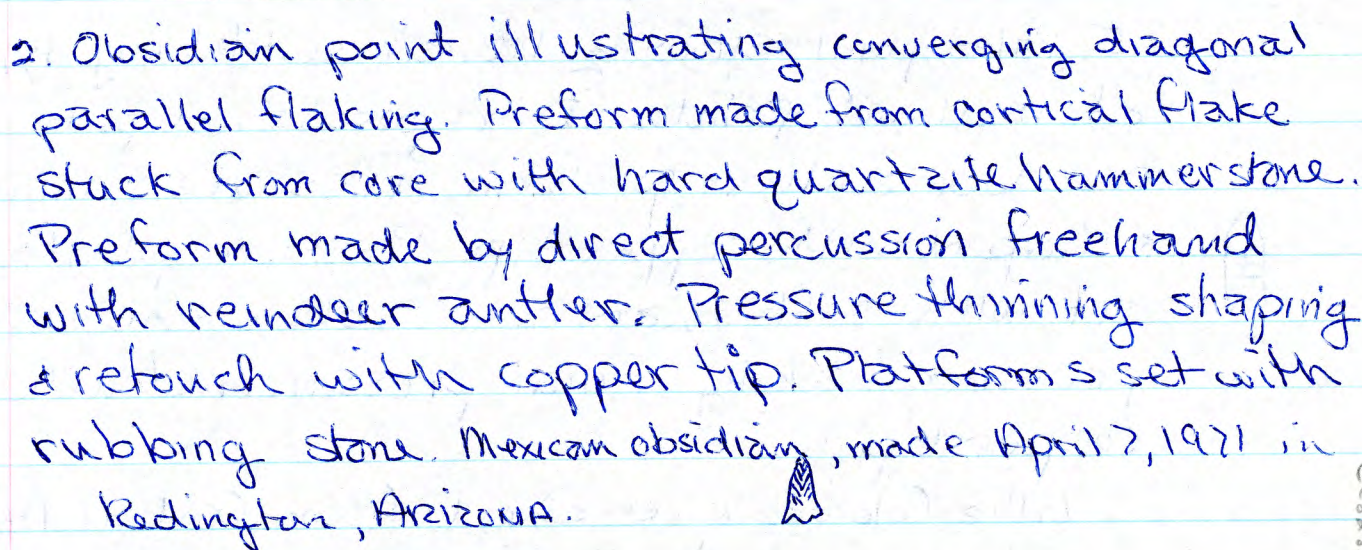 2. Obsidian point illustrating converging diagonal
parallel flaking. Preform made from cortical flake
stuck from core with hard quartzite hammerstone.
Preform made by direct percussion freehand
with reindeer antler. Pressure thinning shaping
& retouch with copper tip. Platforms set with
rubbing stone. Mexican obsidian, made April 7, 1971 in
Redington, ARIZONA.